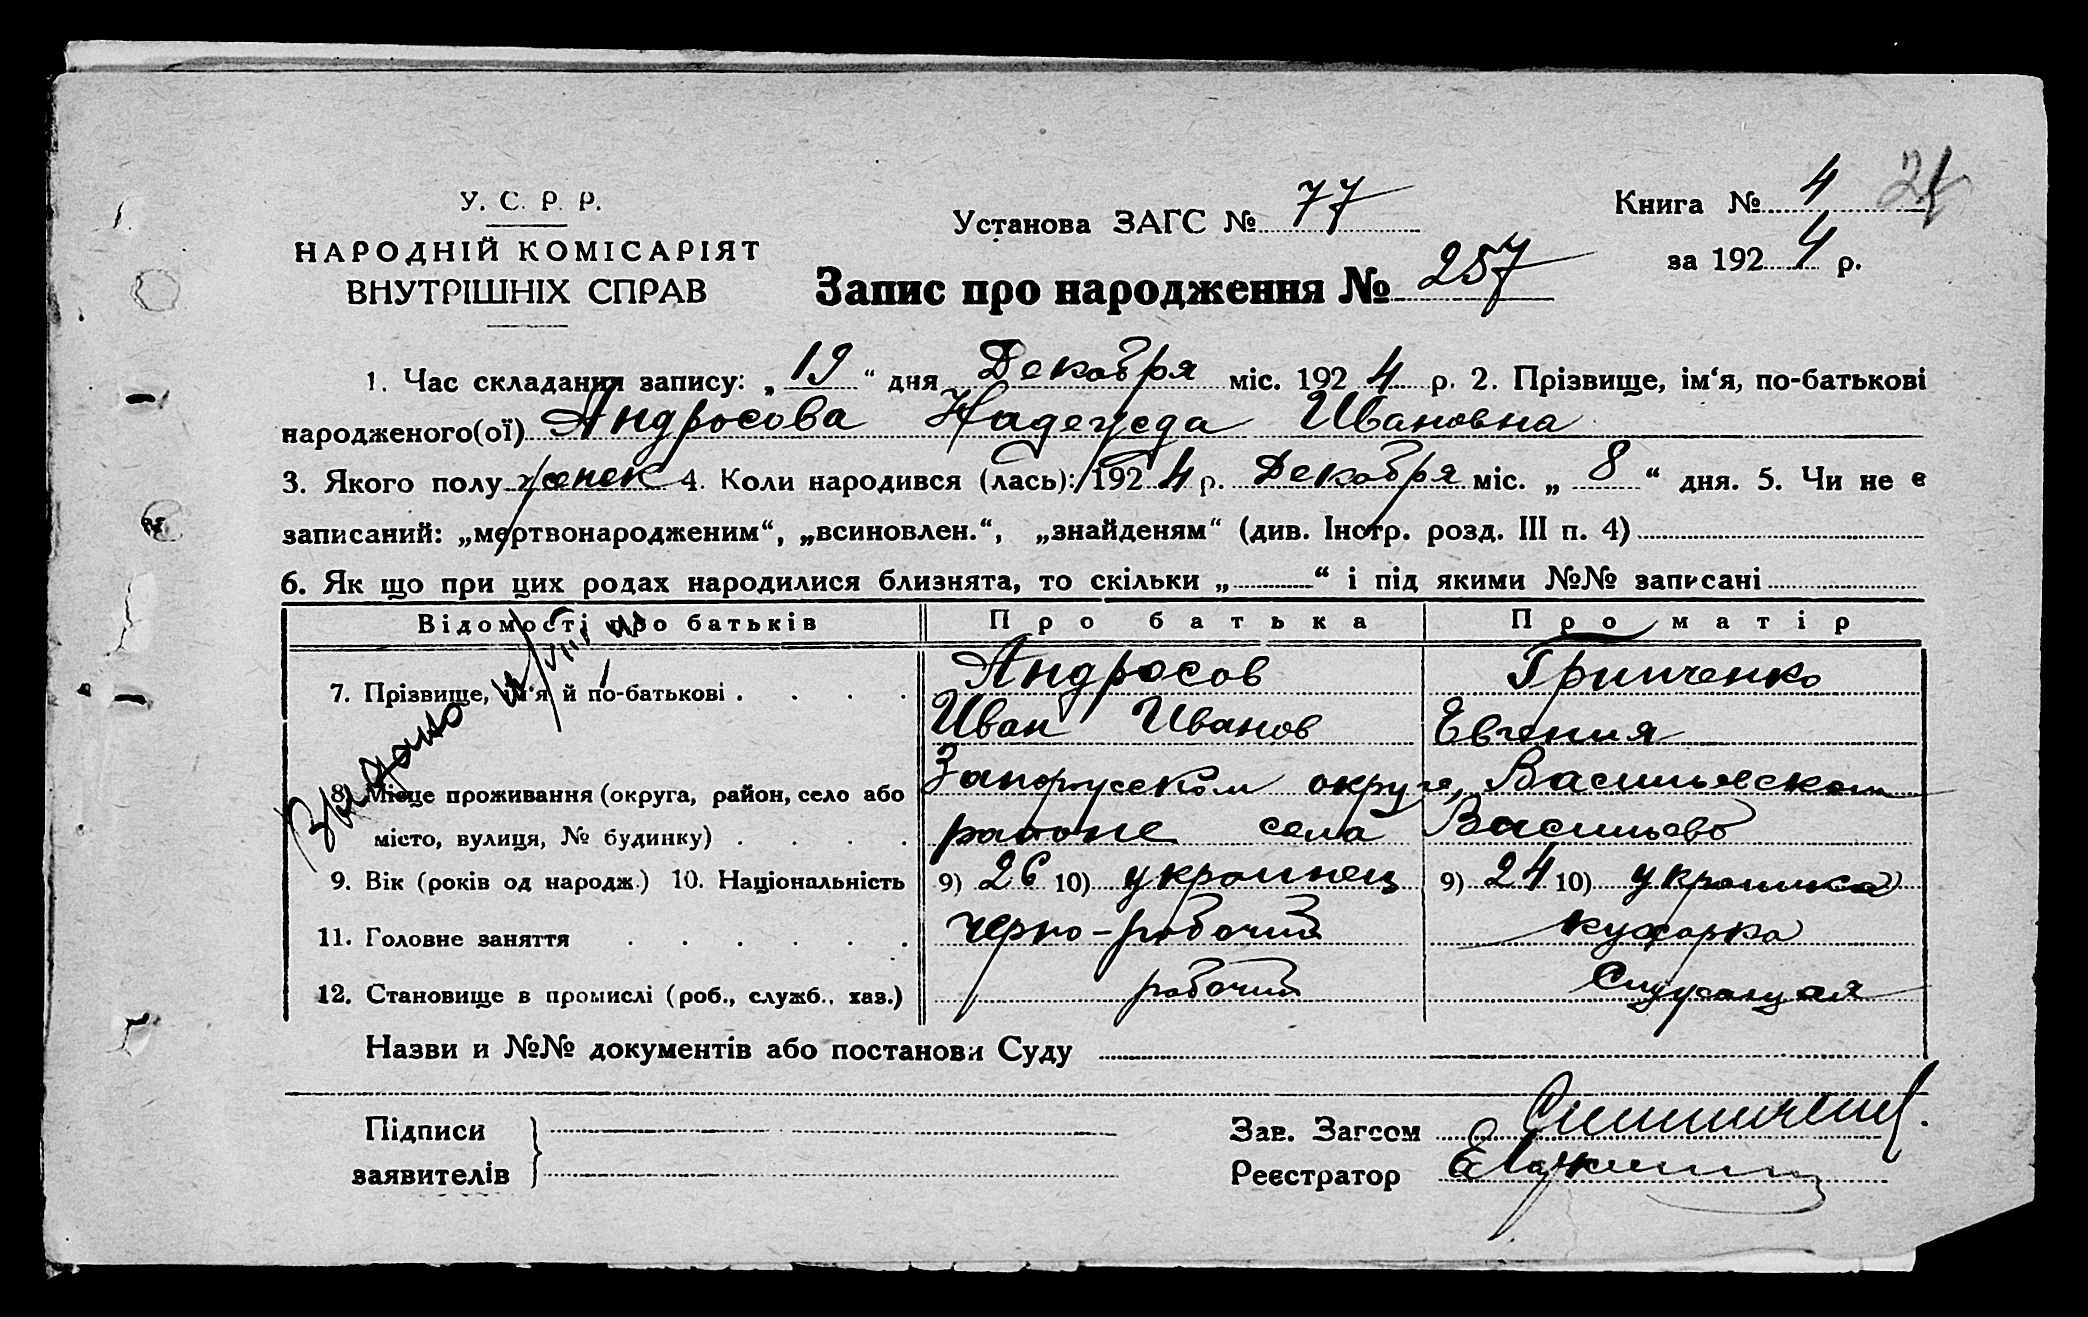 У. С. Р. Р.
НАРОДНІЙ КОМІСАРІЯТ
ВНУТРІШНІХ СПРАВ
Установа ЗАГС № 77
Книга № 4
за 1924 р.
Запис про народження № 257
1. Час складання запису: „19“ дня Декабря міс. 1924 р. 2. Прізвище, ім‘я, по-батькові
народженого(ої) Андросова Надежда Ивановна
3. Якого полу женск 4. Коли народився (лась): 1924 р. Декабря міс. „8“ дня. 5. Чи не є
записаний: „мертвонародженим“, „всиновлен.“, „знайденям“ (див. Інстр. розд. III п. 4)
6. Як що при цих родах народилися близнята, то скільки „ “ і під якими №№ записані
Відомості про батьків Про батька Про матір
7. Прізвище, ім‘я й по-батькові Андросов Гринченко
Иван Иванов Евгения
8. Місце проживання (округа, район, село або Запорожском округе, Васильевском
місто, вулиця, № будинку) районе села Васильево
9. Вік (років од народж.) 10. Національність 9) 26 10) украинец 9) 24 10) украинка
11. Головне заняття черно-рабочий кухарка
12. Становище в промислі (роб., служб., хаз.) рабочий Служащая
Назви и №№ документів або постанови Суду
Підписи
заявителів
Зав. Загсом
Реєстратор